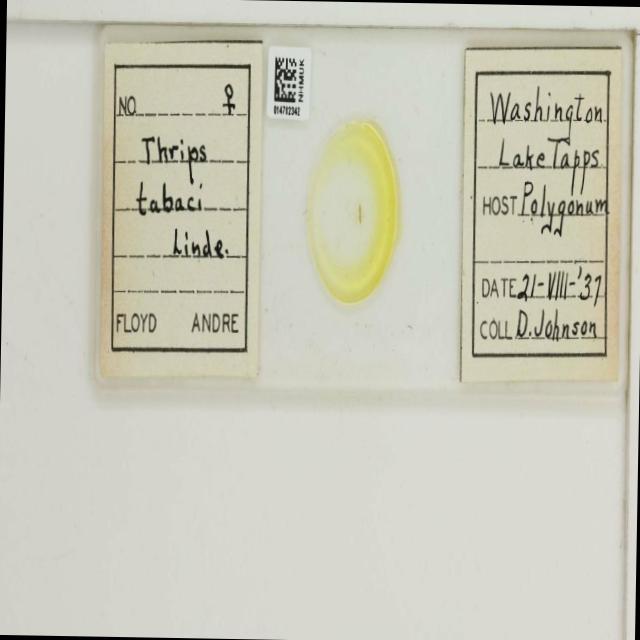 NO. ♀
Thrips
tabaci
Linde.
FLOYD ANDRE
NHMUK
014702342
Washington
Lake Tapps
HOST Polygonum
DATE 21-VIII-'37
COLL D. Johnson